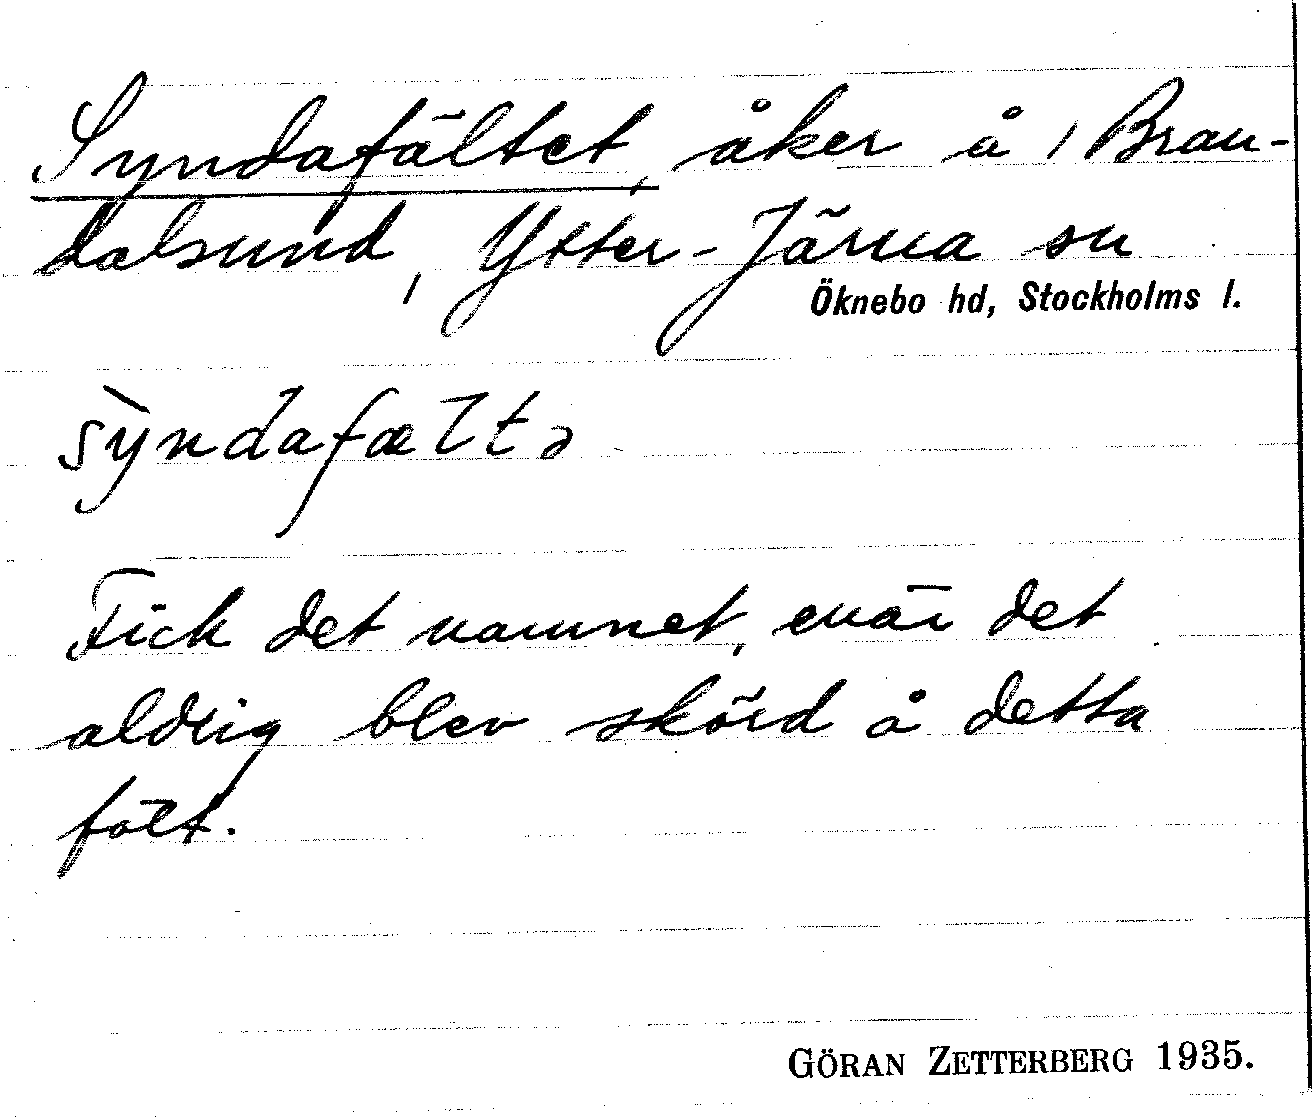 Syndafältet, åker å / Bran-
dalsund, Ytter-Järna sn
Öknebo hd, Stockholms l.
sỳndafæltə
Fick det namnet, enär det
aldrig blev skörd å detta
fält.
GÖRAN ZETTERBERG 1935.